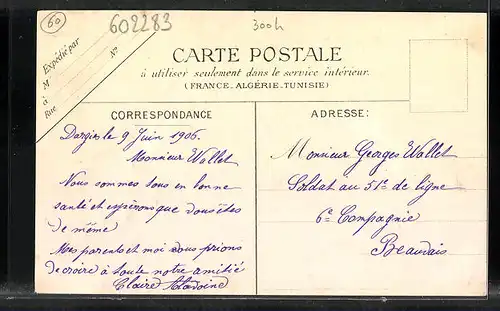 60
602283
300h
Expédié par
M
à
Rue
N°
CARTE POSTALE
à utiliser seulement dans le service intérieur.
(FRANCE_ALGÉRIE_TUNISIE)
CORRESPONDANCE
ADRESSE:
Dargies le 9 Juin 1906.
Monsieur Wallet
Nous sommes tous en bonne
santé et espérons que vous êtes
de même
Mes parents et moi vous prions
de croire à toute notre amitié
Claire
Monsieur Georges Wallet
Soldat au 51e de ligne
6e Compagnie
Beauvais